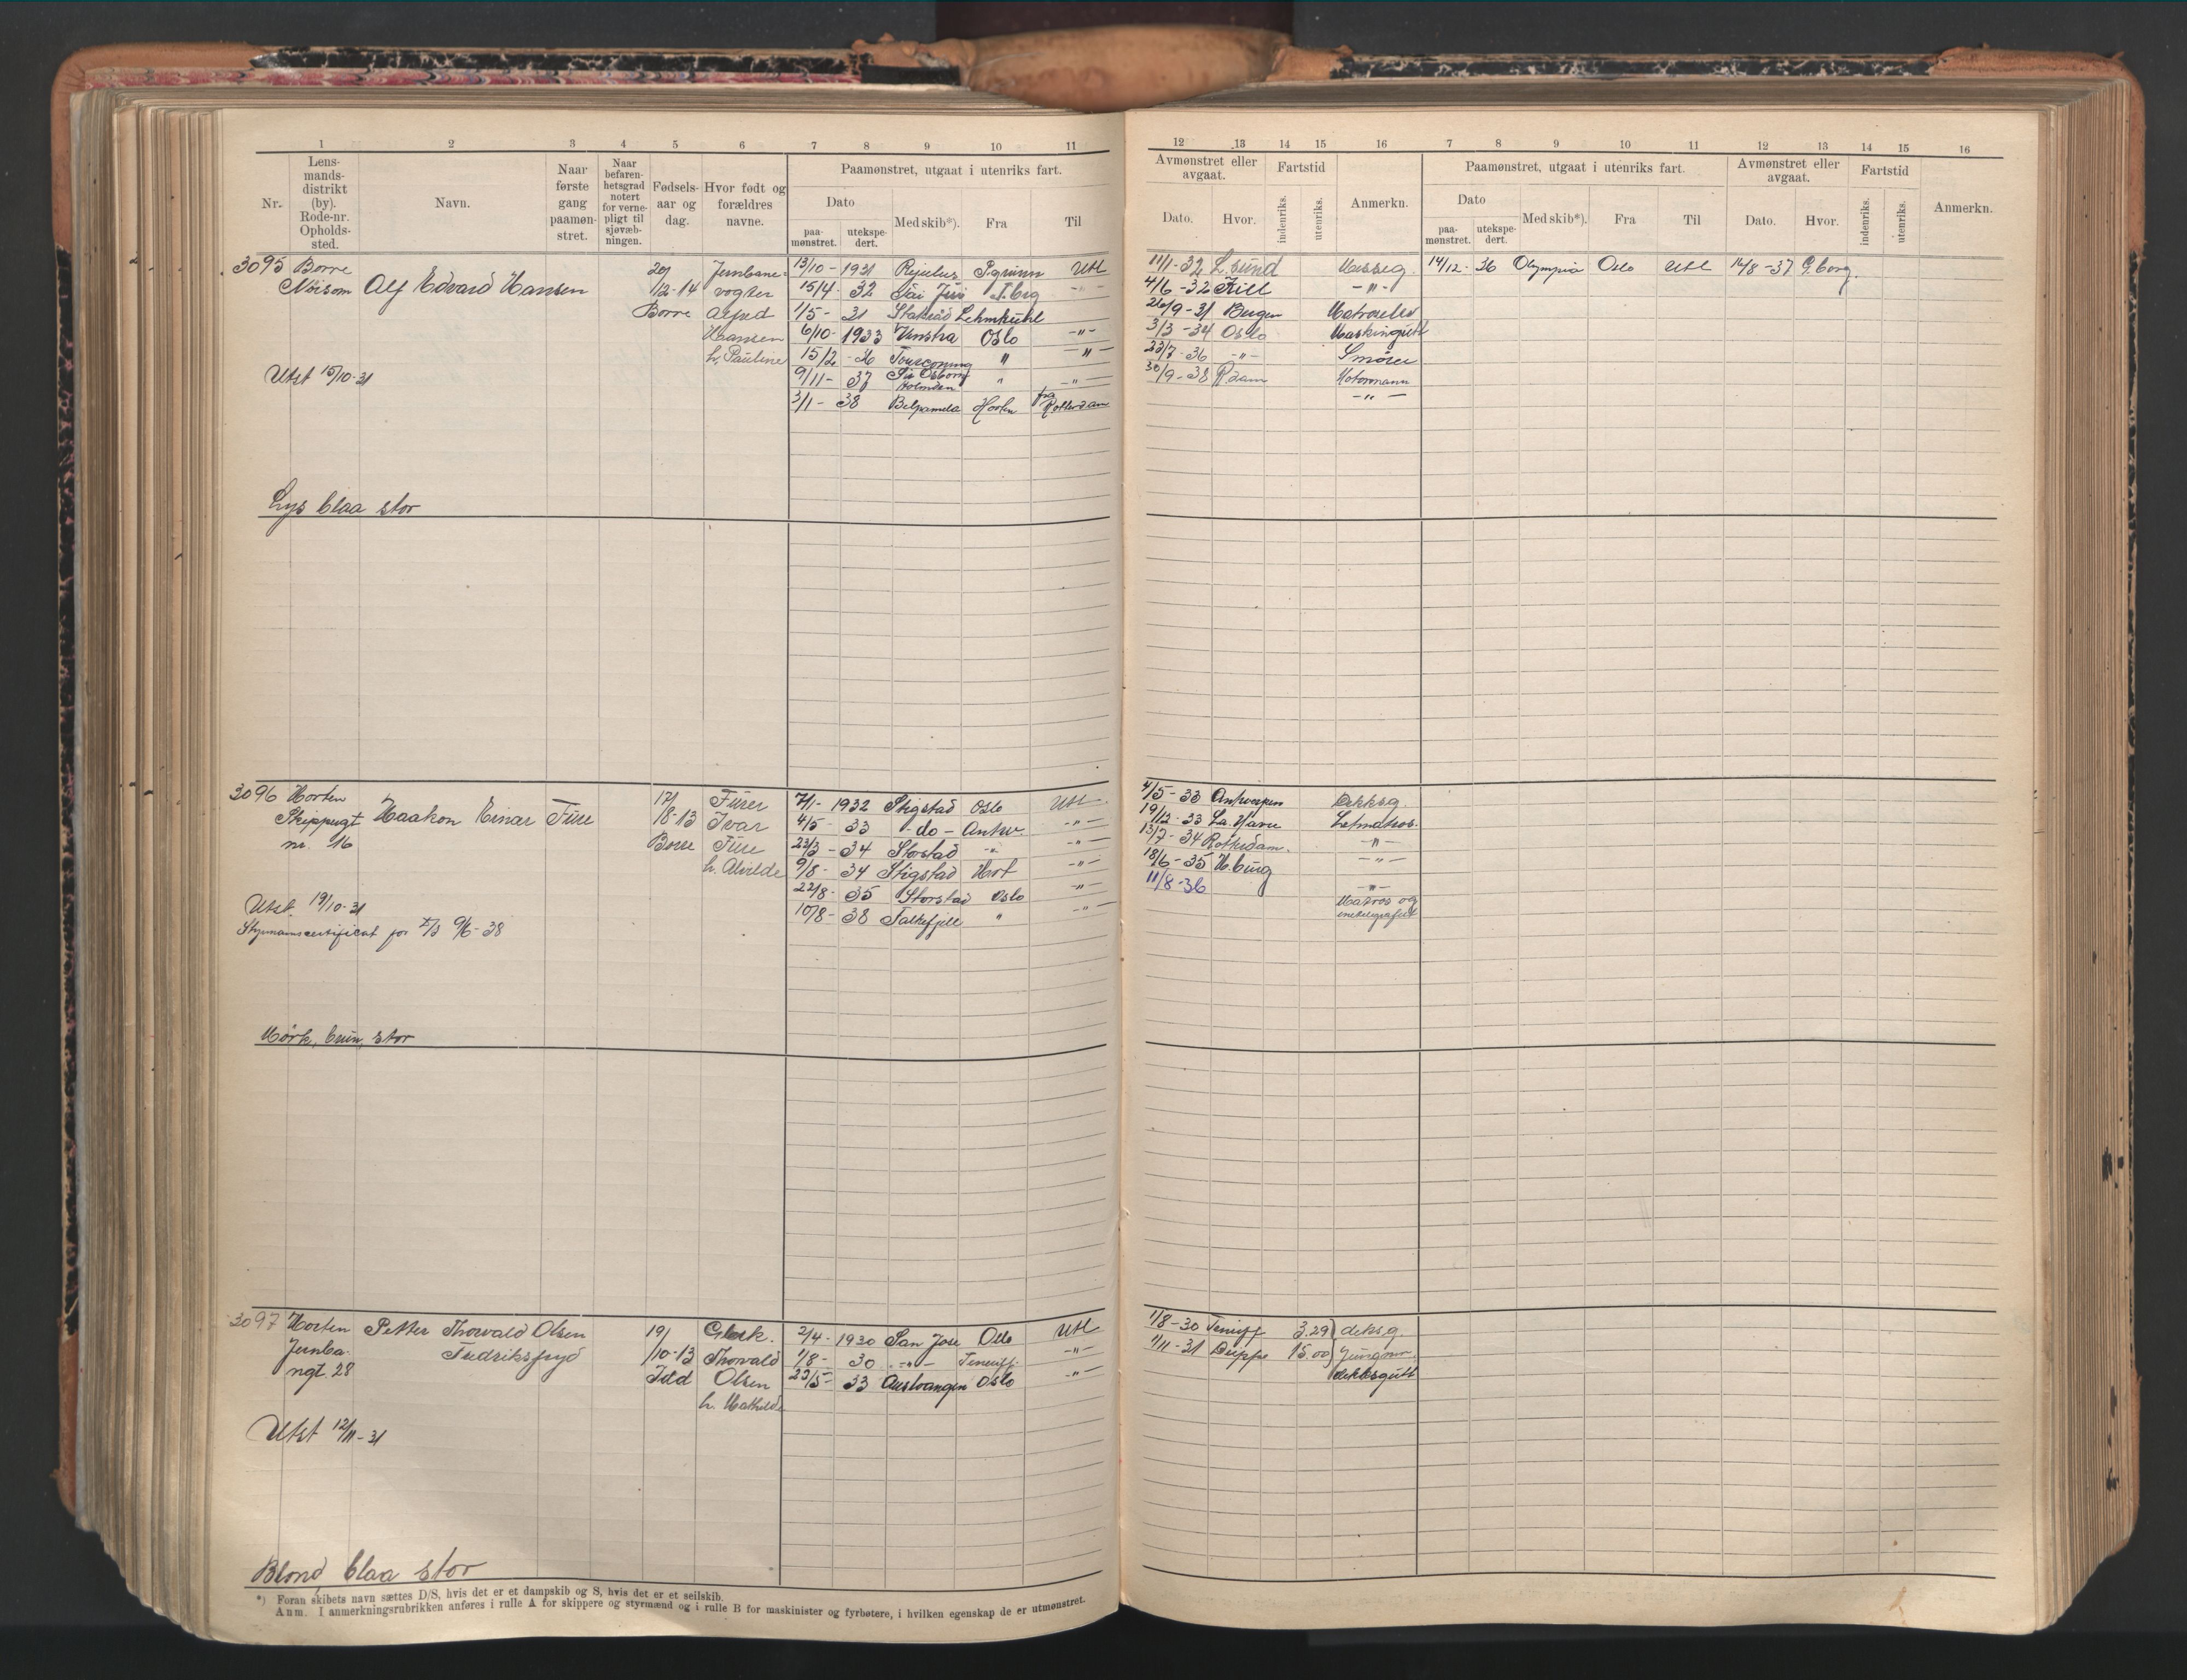 1 2 3 4 5 6 7 8 9 10 11
Nr. Lens-mands-distrikt (by). Rode-nr. Opholds-sted. Navn. Naar første gang paamøn-stret. Naar befaren-hetsgrad notert for verne-pligt til sjøvæb-ningen. Fødsels-aar og dag. Hvor født og forældres navne. Paamønstret, utgaat i utenriks fart.
Dato Med skib*). Fra Til
paa-mønstret. utekspe-dert.
3095 Borre Alf Edvard Hansen 20/ Jernbane- 13/10 - 1931 P.grunn Utl
Nøisom 1/2-14 vogter 15/4 - 32 T.brg -"-
Borre 1/5 - 31 Statsraad Lehmkuhl
Hansen 6/10 - 1933 Vinstra Oslo -"-
h. Pauline 15/2 - 36 Tourcoing " -"-
Utst 15/10-31 9/11 - 37 Sir Osborn Holmden " -"-
3/1 - 38 Belpamela Horten fra Rotterdam
Lys blaa stor
3096 Horten Haakon Einar Fure 17/ Fører 7/1 - 1932 Stigstad Oslo Utl
Skippergt 8-13 Ivar 4/5 - 33 - do - Antw. -"-
nr. 16 Borre Fure 23/3 - 34 Storstad -"- -"-
h. Alvilde 9/8 - 34 Stigstad Hort -"-
22/8 - 35 Storstad Oslo -"-
Utst. 19/10-31 10/8 - 38 Falkefjell " -"-
Styrmannscertifikat for 9/6-38
Mørk, brun, stor
3097 Horten Petter Thorvald Olsen 19/ 2/4 - 1930 San Jose Oslo Utl
Jernba- Fredriksfryd /10-13 Thorvald 1/8 - 30 -"- Teneriff. -"-
ngt 28 Olsen 23/5 - 33 Austvangen Oslo -"-
h. Mathilde
Utst 12/11-31
Blond blaa stor
*) Foran skibets navn sættes D/S, hvis det er et dampskib og S, hvis det er et seilskib.
Anm. I anmerkningsrubrikken anføres i rulle A for skippere og styrmænd og i rulle B for maskinister og fyrbøtere, i hvilken egenskap de er utmønstret.
12 13 14 15 16 7 8 9 10 11 12 13 14 15 16
Avmønstret eller avgaat. Fartstid Anmerkn. Paamønstret, utgaat i utenriks fart. Avmønstret eller avgaat. Fartstid Anmerkn.
Dato. Hvor. indenriks. utenriks. Dato Med skib*). Fra Til Dato. Hvor. indenriks. utenriks.
paa-mønstret. utekspe-dert.
11/1-32 L.sund Messeg. 14/12 - 36 Olympia Oslo Utl 14/8-37 G.borg.
4/6-32 -"-
26/9-31 Bergen
3/3-34 Oslo Maskingutt
23/7-36 -"- Smører
30/9-38 R.dam Motormann
-"-
4/5-33 Antwerpen Dekksg.
19/12-33 La. Havre Letmatros.
13/7-34 Rotterdam. -"-
18/6-35 H.burg -"-
11/8-36 -"-
Matros og
1/8-30 Teneriff 3.29 deksg.
1/11-31 Dieppe 15.00 Jungm.
dekksgutt